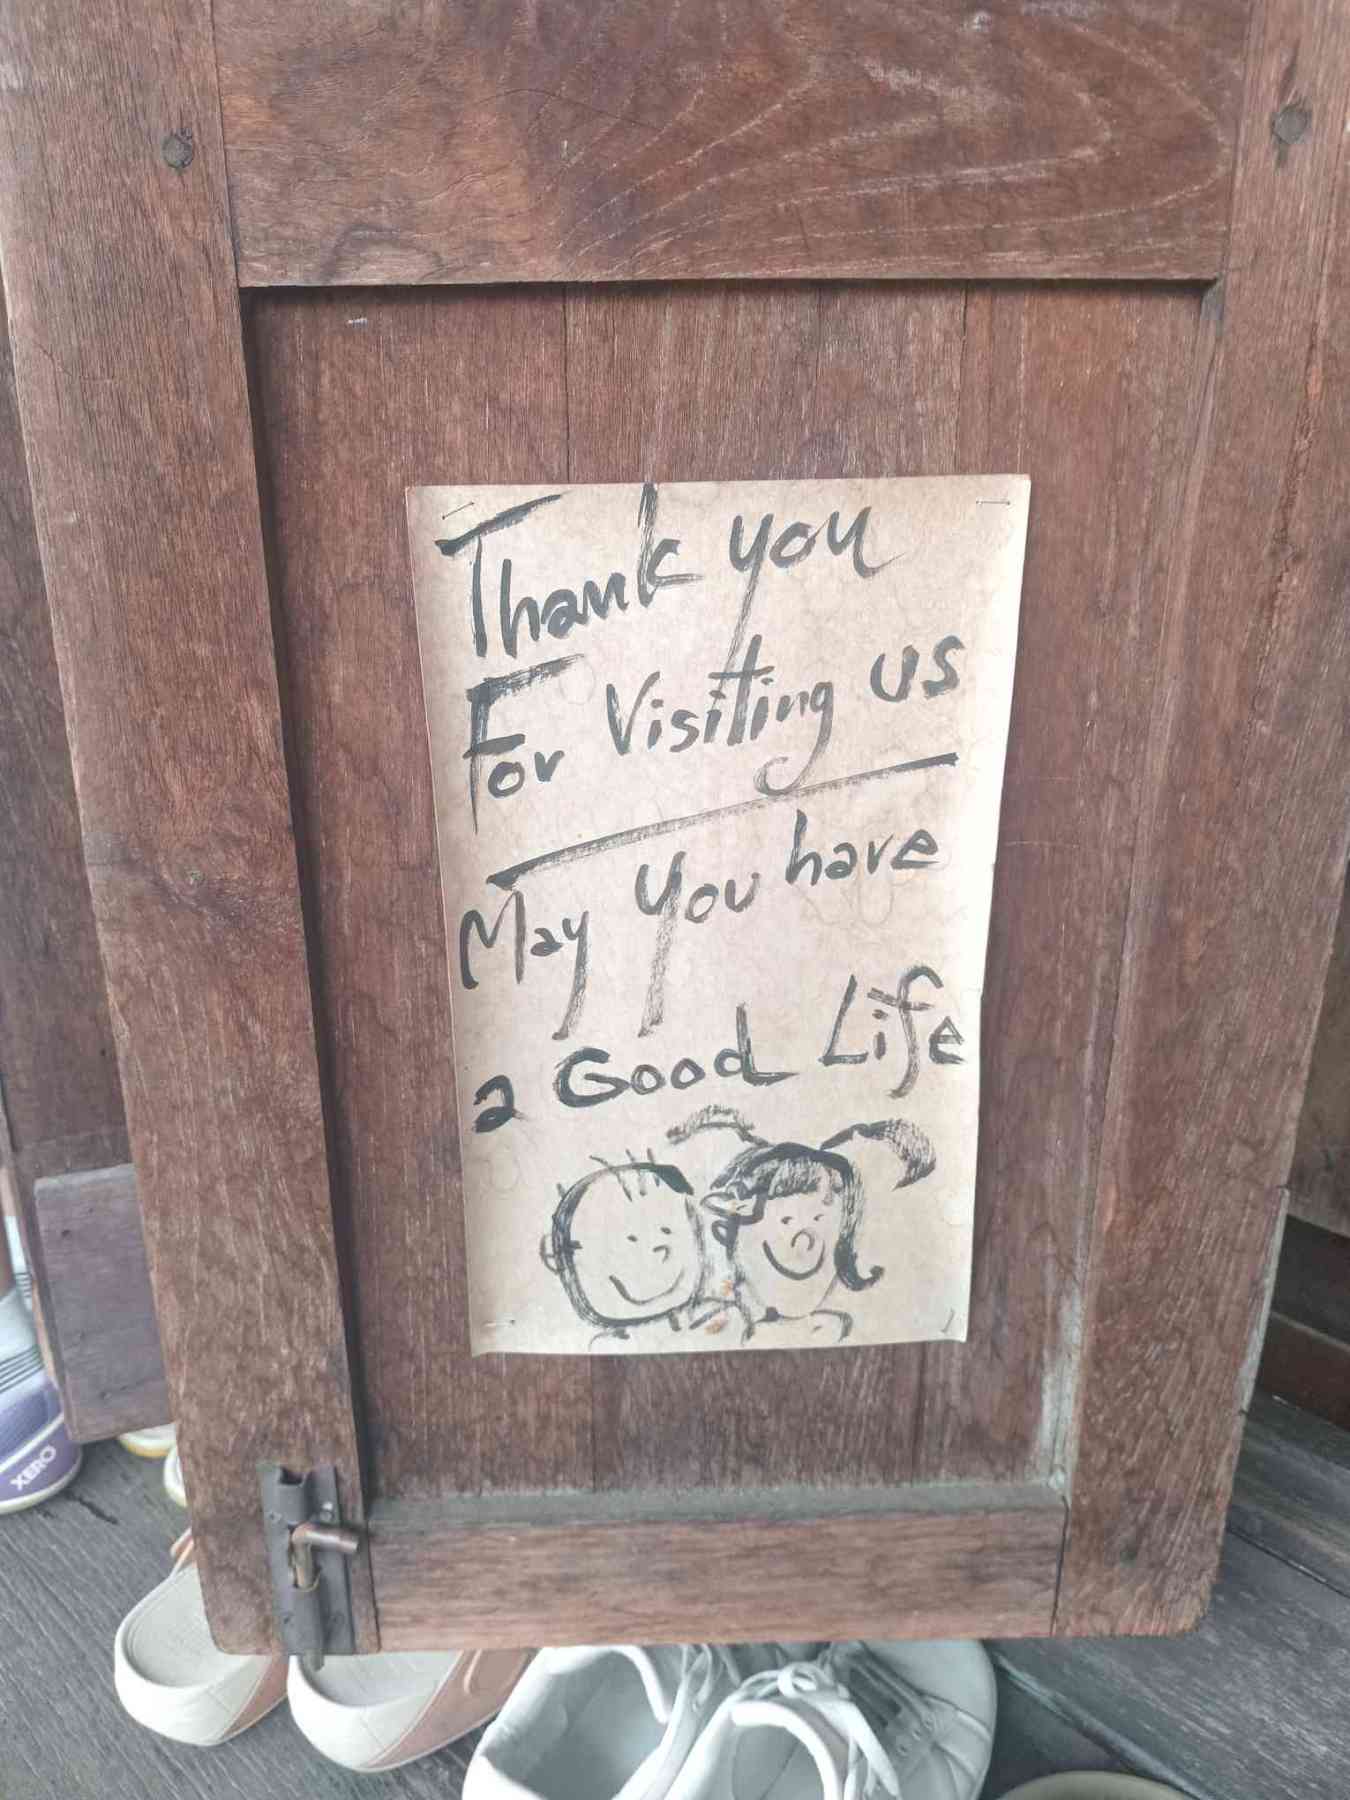 Thank you
For Visiting us
May you have
a Good Life
XERO